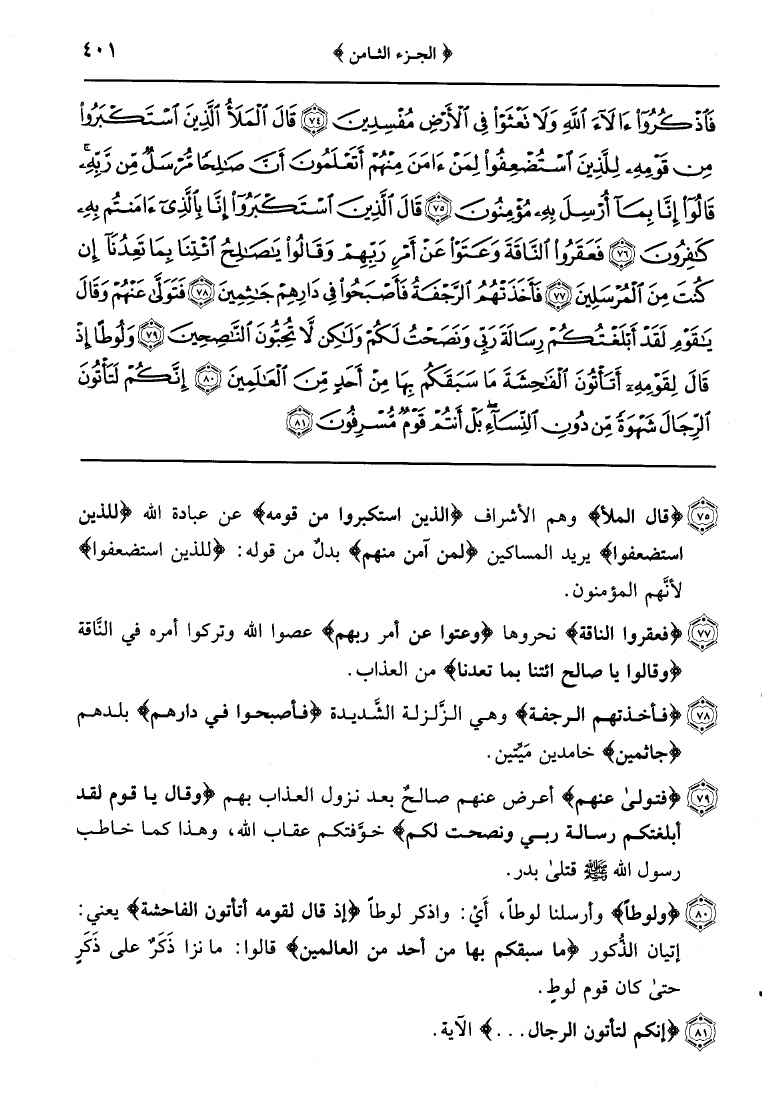 ﴿ الجزء الثامن ﴾ ٤٠١
فَٱذۡكُرُوٓاْ ءَالَآءَ ٱللَّهِ وَلَا تَعۡثَوۡاْ فِي ٱلۡأَرۡضِ مُفۡسِدِينَ ٧٤ قَالَ ٱلۡمَلَأُ ٱلَّذِينَ ٱسۡتَكۡبَرُواْ
مِن قَوۡمِهِۦ لِلَّذِينَ ٱسۡتُضۡعِفُواْ لِمَنۡ ءَامَنَ مِنۡهُمۡ أَتَعۡلَمُونَ أَنَّ صَٰلِحٗا مُّرۡسَلٞ مِّن رَّبِّهِۦۚ
قَالُوٓاْ إِنَّا بِمَآ أُرۡسِلَ بِهِۦ مُؤۡمِنُونَ ٧٥ قَالَ ٱلَّذِينَ ٱسۡتَكۡبَرُوٓاْ إِنَّا بِٱلَّذِيٓ ءَامَنتُم بِهِۦ
كَٰفِرُونَ ٧٦ فَعَقَرُواْ ٱلنَّاقَةَ وَعَتَوۡاْ عَنۡ أَمۡرِ رَبِّهِمۡ وَقَالُواْ يَٰصَٰلِحُ ٱئۡتِنَا بِمَا تَعِدُنَآ إِن
كُنتَ مِنَ ٱلۡمُرۡسَلِينَ ٧٧ فَأَخَذَتۡهُمُ ٱلرَّجۡفَةُ فَأَصۡبَحُواْ فِي دَارِهِمۡ جَٰثِمِينَ ٧٨ فَتَوَلَّىٰ عَنۡهُمۡ وَقَالَ
يَٰقَوۡمِ لَقَدۡ أَبۡلَغۡتُكُمۡ رِسَالَةَ رَبِّي وَنَصَحۡتُ لَكُمۡ وَلَٰكِن لَّا تُحِبُّونَ ٱلنَّٰصِحِينَ ٧٩ وَلُوطًا إِذۡ
قَالَ لِقَوۡمِهِۦٓ أَتَأۡتُونَ ٱلۡفَٰحِشَةَ مَا سَبَقَكُم بِهَا مِنۡ أَحَدٖ مِّنَ ٱلۡعَٰلَمِينَ ٨٠ إِنَّكُمۡ لَتَأۡتُونَ
ٱلرِّجَالَ شَهۡوَةٗ مِّن دُونِ ٱلنِّسَآءِۚ بَلۡ أَنتُمۡ قَوۡمٞ مُّسۡرِفُونَ ٨١
٧٥ ﴿قال الملأ﴾ وهم الأشراف ﴿الذين استكبروا من قومه﴾ عن عبادة الله ﴿للذين
استضعفوا﴾ يريد المساكين ﴿لمن آمن منهم﴾ بدلٌ من قوله: ﴿للذين استضعفوا﴾
لأنَّهم المؤمنون.
٧٧ ﴿فعقروا الناقة﴾ نحروها ﴿وعتوا عن أمر ربهم﴾ عصوا الله وتركوا أمره في النَّاقة
﴿وقالوا يا صالح ائتنا بما تعدنا﴾ من العذاب.
٧٨ ﴿فأخذتهم الرجفة﴾ وهي الزَّلزلة الشَّديدة ﴿فأصبحوا في دارهم﴾ بلدهم
﴿جاثمين﴾ خامدين مَيِّتين.
٧٩ ﴿فتولىٰ عنهم﴾ أعرض عنهم صالحٌ بعد نزول العذاب بهم ﴿وقال يا قوم لقد
أبلغتكم رسالة ربي ونصحت لكم﴾ خوَّفتكم عقاب الله، وهذا كما خاطب
رسول الله ﷺ قتلىٰ بدر.
٨٠ ﴿ولوطاً﴾ وأرسلنا لوطاً، أَيْ: واذكر لوطاً ﴿إذ قال لقومه أتأتون الفاحشة﴾ يعني:
إتيان الذُّكور ﴿ما سبقكم بها من أحد من العالمين﴾ قالوا: ما نزا ذَكَرٌ على ذَكَرٍ
حتىٰ كان قوم لوطٍ.
٨١ ﴿إنكم لتأتون الرجال...﴾ الآية.